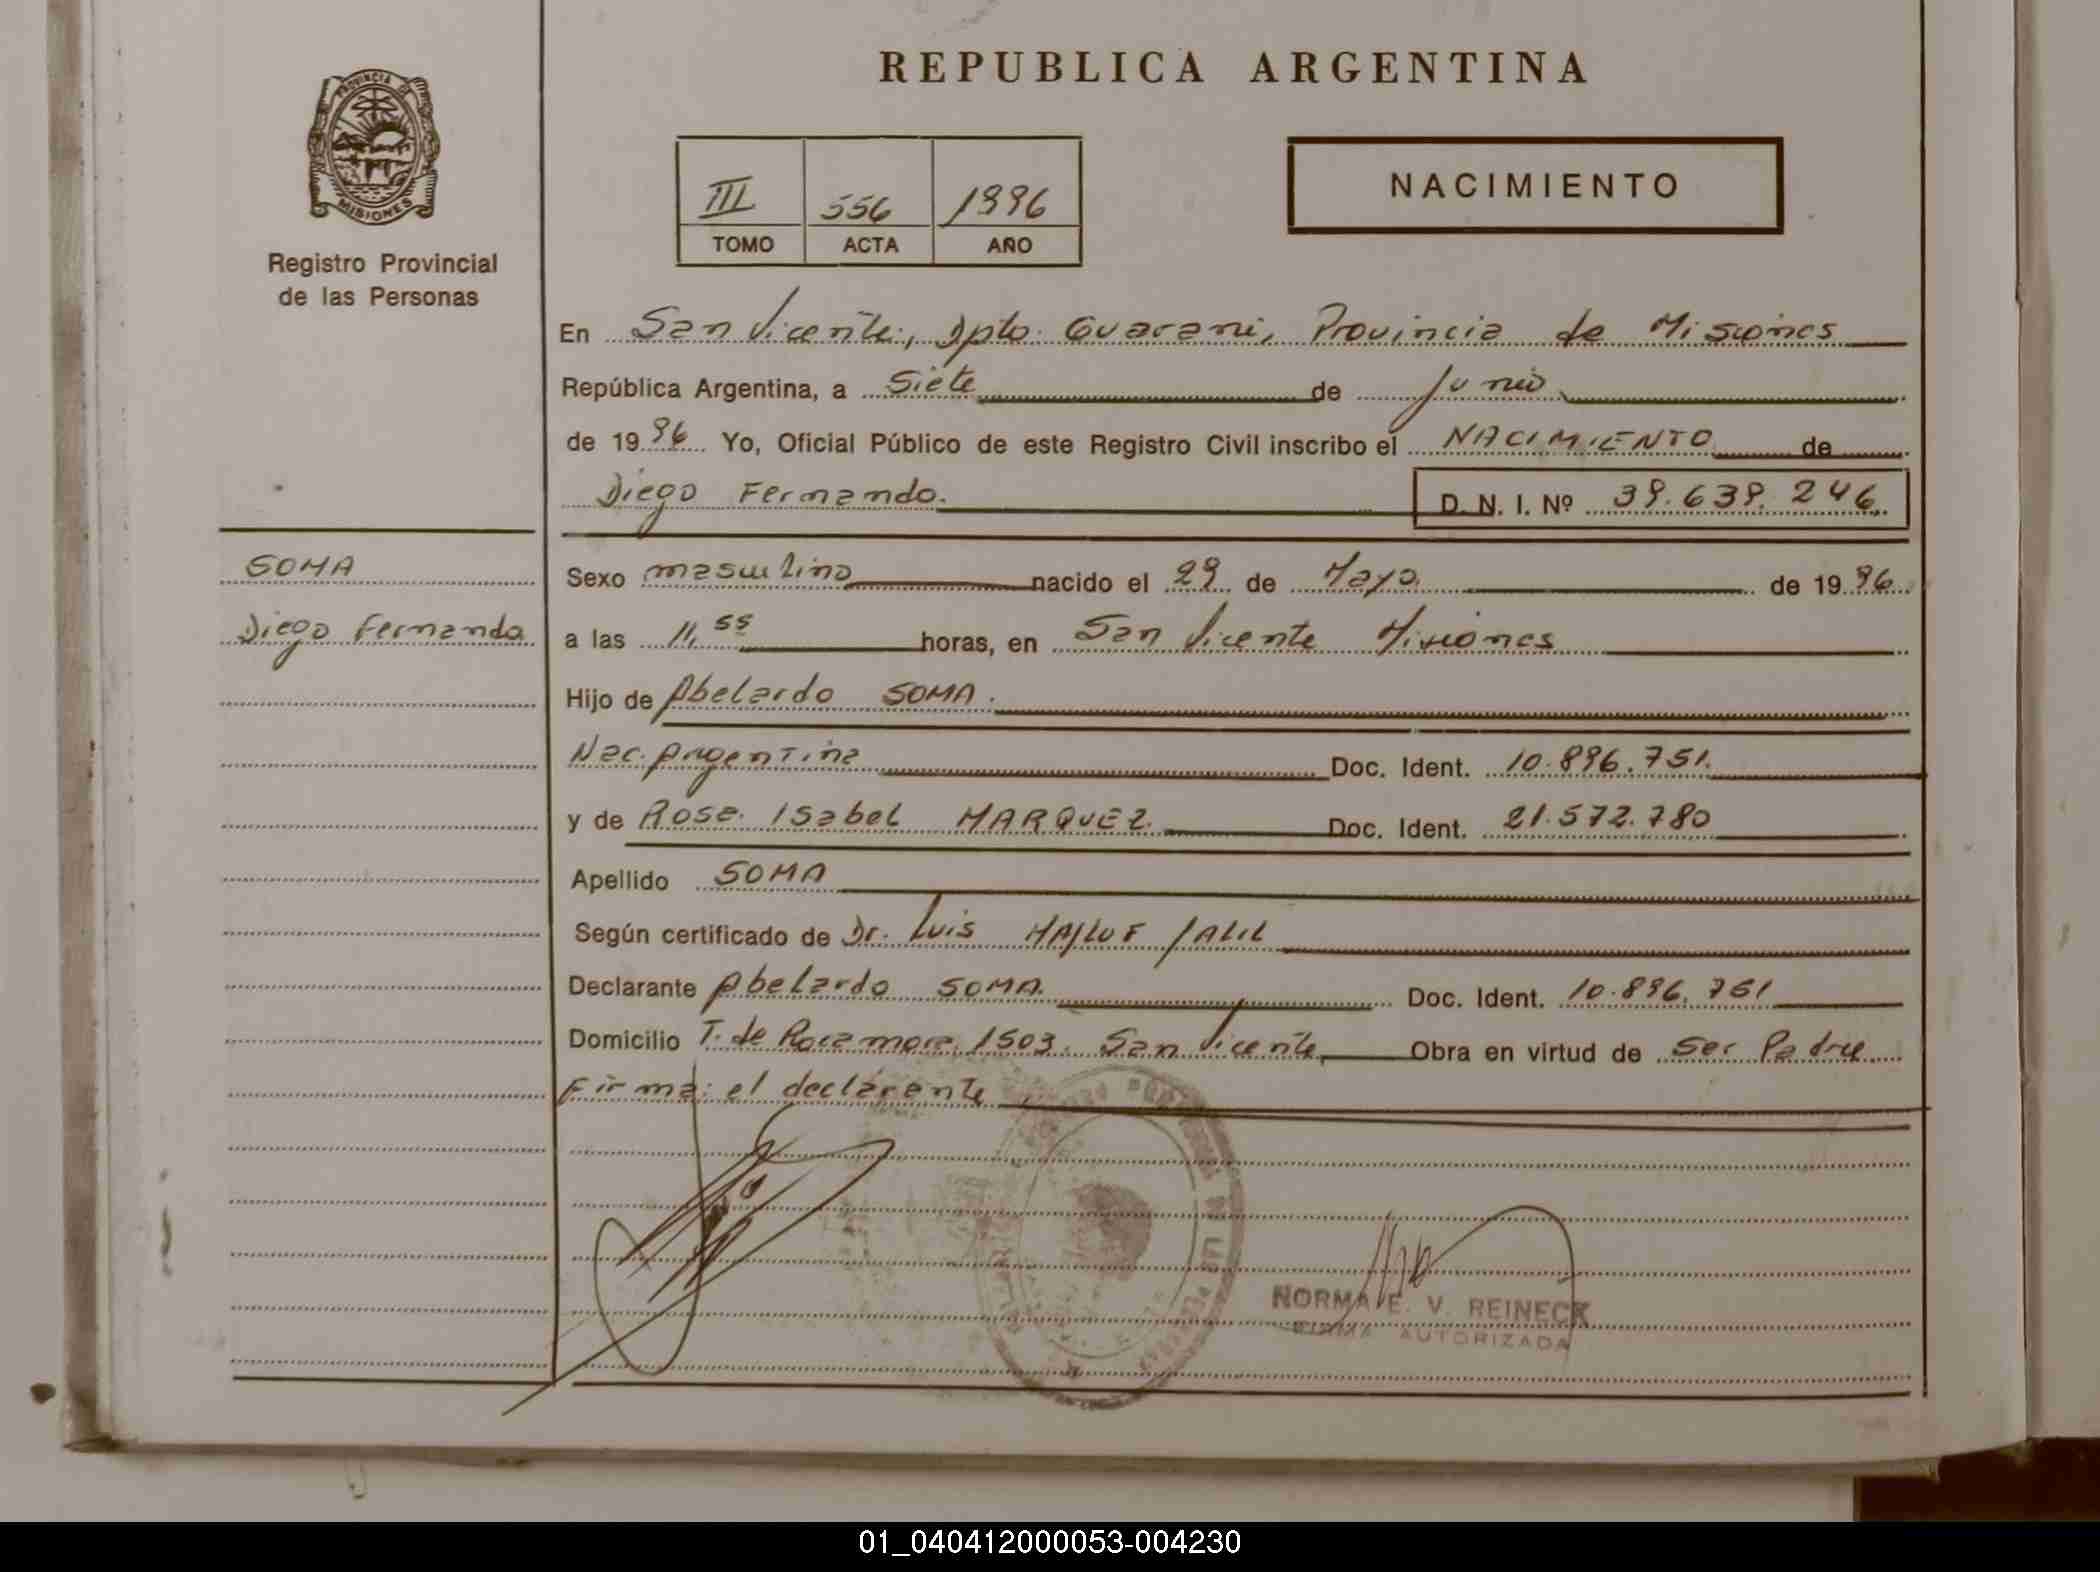 REPUBLICA ARGENTINA
PROVINCIA DE
MISIONES
Registro Provincial
de las Personas
III 556 1996
TOMO ACTA AÑO
NACIMIENTO
En San Vicente, Dpto. Guarani, Provincia de Misiones
República Argentina, a Siete de Junio
de 1996 Yo, Oficial Público de este Registro Civil inscribo el NACIMIENTO de
Diego Fernando. D. N. I. Nº 39.639.246
SOMA
Diego Fernando
Sexo masculino nacido el 29 de Mayo de 1996
a las 11,55 horas, en San Vicente Misiones
Hijo de Abelardo SOMA.
Nac. Argentina Doc. Ident. 10.896.751.
y de Rosa Isabel MARQUEZ. Doc. Ident. 21.572.780
Apellido SOMA
Según certificado de Dr. Luis MAJLUF JALIL
Declarante Abelardo SOMA. Doc. Ident. 10.896.751
Domicilio T. de Rocamora 1503. San Vicente, Obra en virtud de ser Padre
Firma: el declarante
NORMA E. V. REINECK
FIRMA AUTORIZADA
01_040412000053-004230